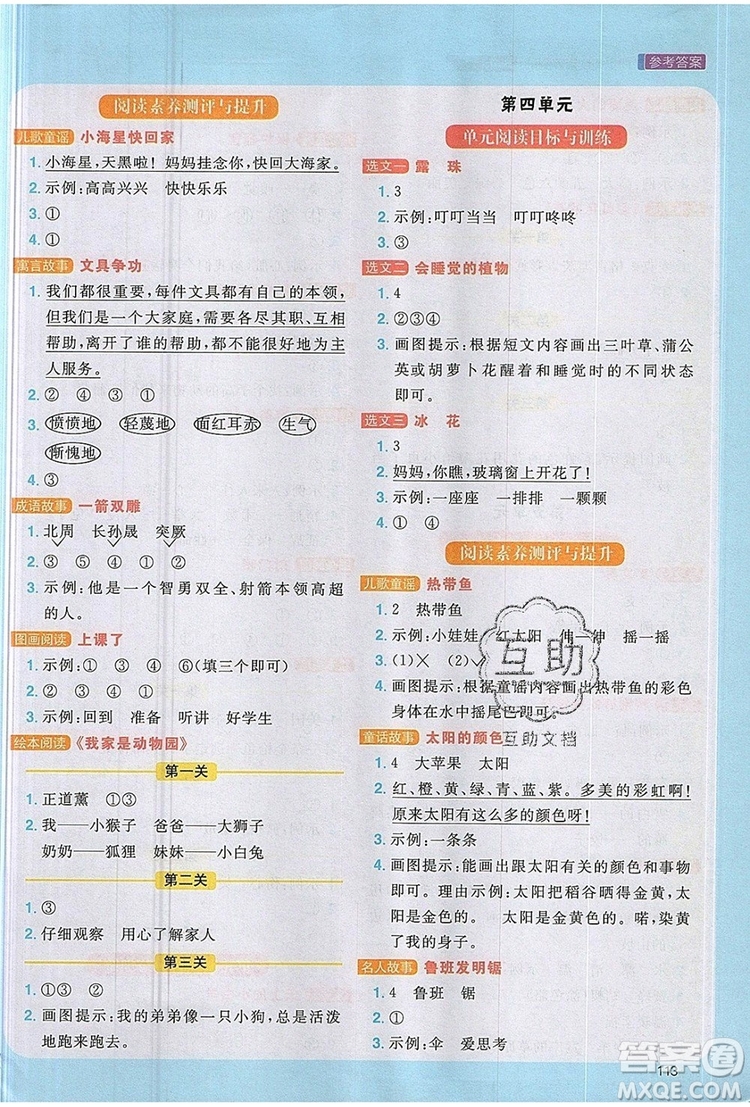 参考答案
阅读素养测评与提升
儿歌童谣 小海星快回家
1. 小海星,天黑啦!妈妈挂念你,快回大海家。
2. 示例:高高兴兴 快快乐乐
3. ①
4. ①
寓言故事 文具争功
1. 我们都很重要,每件文具都有自己的本领,
但我们是一个大家庭,需要各尽其职、互相
帮助,离开了谁的帮助,都不能更好地为主
人服务。
2. ② ④ ③ ①
3. 愤愤地 轻蔑地 面红耳赤 生气
惭愧地
4. ③
成语故事 一箭双雕
1. 北周 长孙晟 突厥
2. ③ ⑤ ② ④ ①
3. 示例:他是一个智勇双全、射箭本领高超
的人。
图画阅读 上课了
1. 示例:① ③ ④ ⑥(填三个即可)
2. ①
3. 示例:回到 准备 听讲 好学生
绘本阅读 《我家是动物园》
第一关
1. 正道薰 ①③
2. 我——小猴子 爸爸——大狮子
奶奶——狐狸 妹妹——小白兔
第二关
1. ③
2. 仔细观察 用心了解家人
第三关
1. ①②③
2. 画图提示:我的弟弟像一只小狗,总是活泼
地跑来跑去。
第四单元
单元阅读目标与训练
选文一 露珠
1. 3
2. 示例:叮叮当当 叮叮咚咚
3. ③
选文二 会睡觉的植物
1. 4
2. ①③④
3. 画图提示:根据短文内容画出三叶草、蒲公
英或胡萝卜花醒着和睡觉时的不同状态
即可。
选文三 冰花
1. 3
2. 妈妈,你瞧,玻璃窗上开花了!
3. 示例:一座座 一排排 一颗颗
4. ① ④
阅读素养测评与提升
儿歌童谣 热带鱼
1. 2 热带鱼
2. 示例:小娃娃 红太阳 伸一伸 摇一摇
3. (1)× (2)√
4. 画图提示:根据童谣内容画出热带鱼的彩色
身体在水中摇尾巴即可。
童话故事 太阳的颜色
1. 4 大苹果 太阳
2. 红、橙、黄、绿、青、蓝、紫。多美的彩虹啊!
原来太阳有这么多的颜色呀!
3. 示例:一条条
4. 画图提示:能画出跟太阳有关的颜色和事物
即可。示例:太阳把稻谷染得金黄,
太阳是金色的。太阳是金黄色的。喏,染黄
了我的身子。
名人故事 鲁班发明锯
1. 4 鲁班 锯
2. ①
3. 示例:伞 爱思考
互助
互助文档
答案圈
MXQE.COM
113